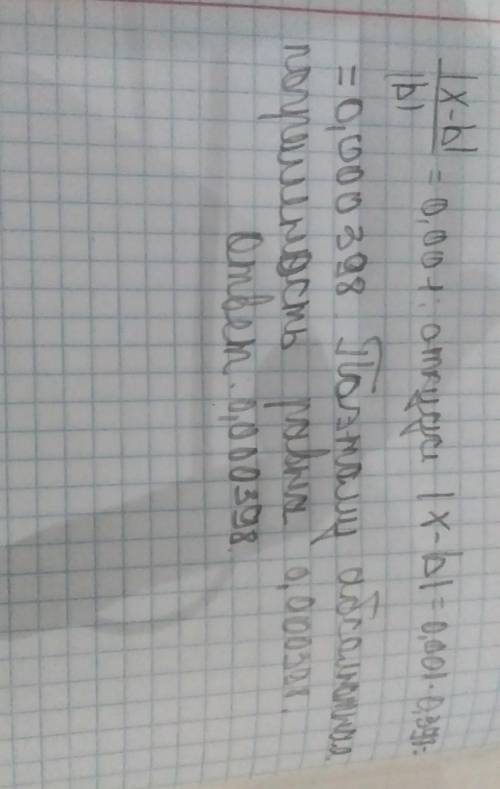 |x-b|/|b| = 0,001; откуда |x-b| = 0,001·0,398=
= 0,000398. Поэтому абсолютная
погрешность равна 0,000398.
Ответ. 0,000398.